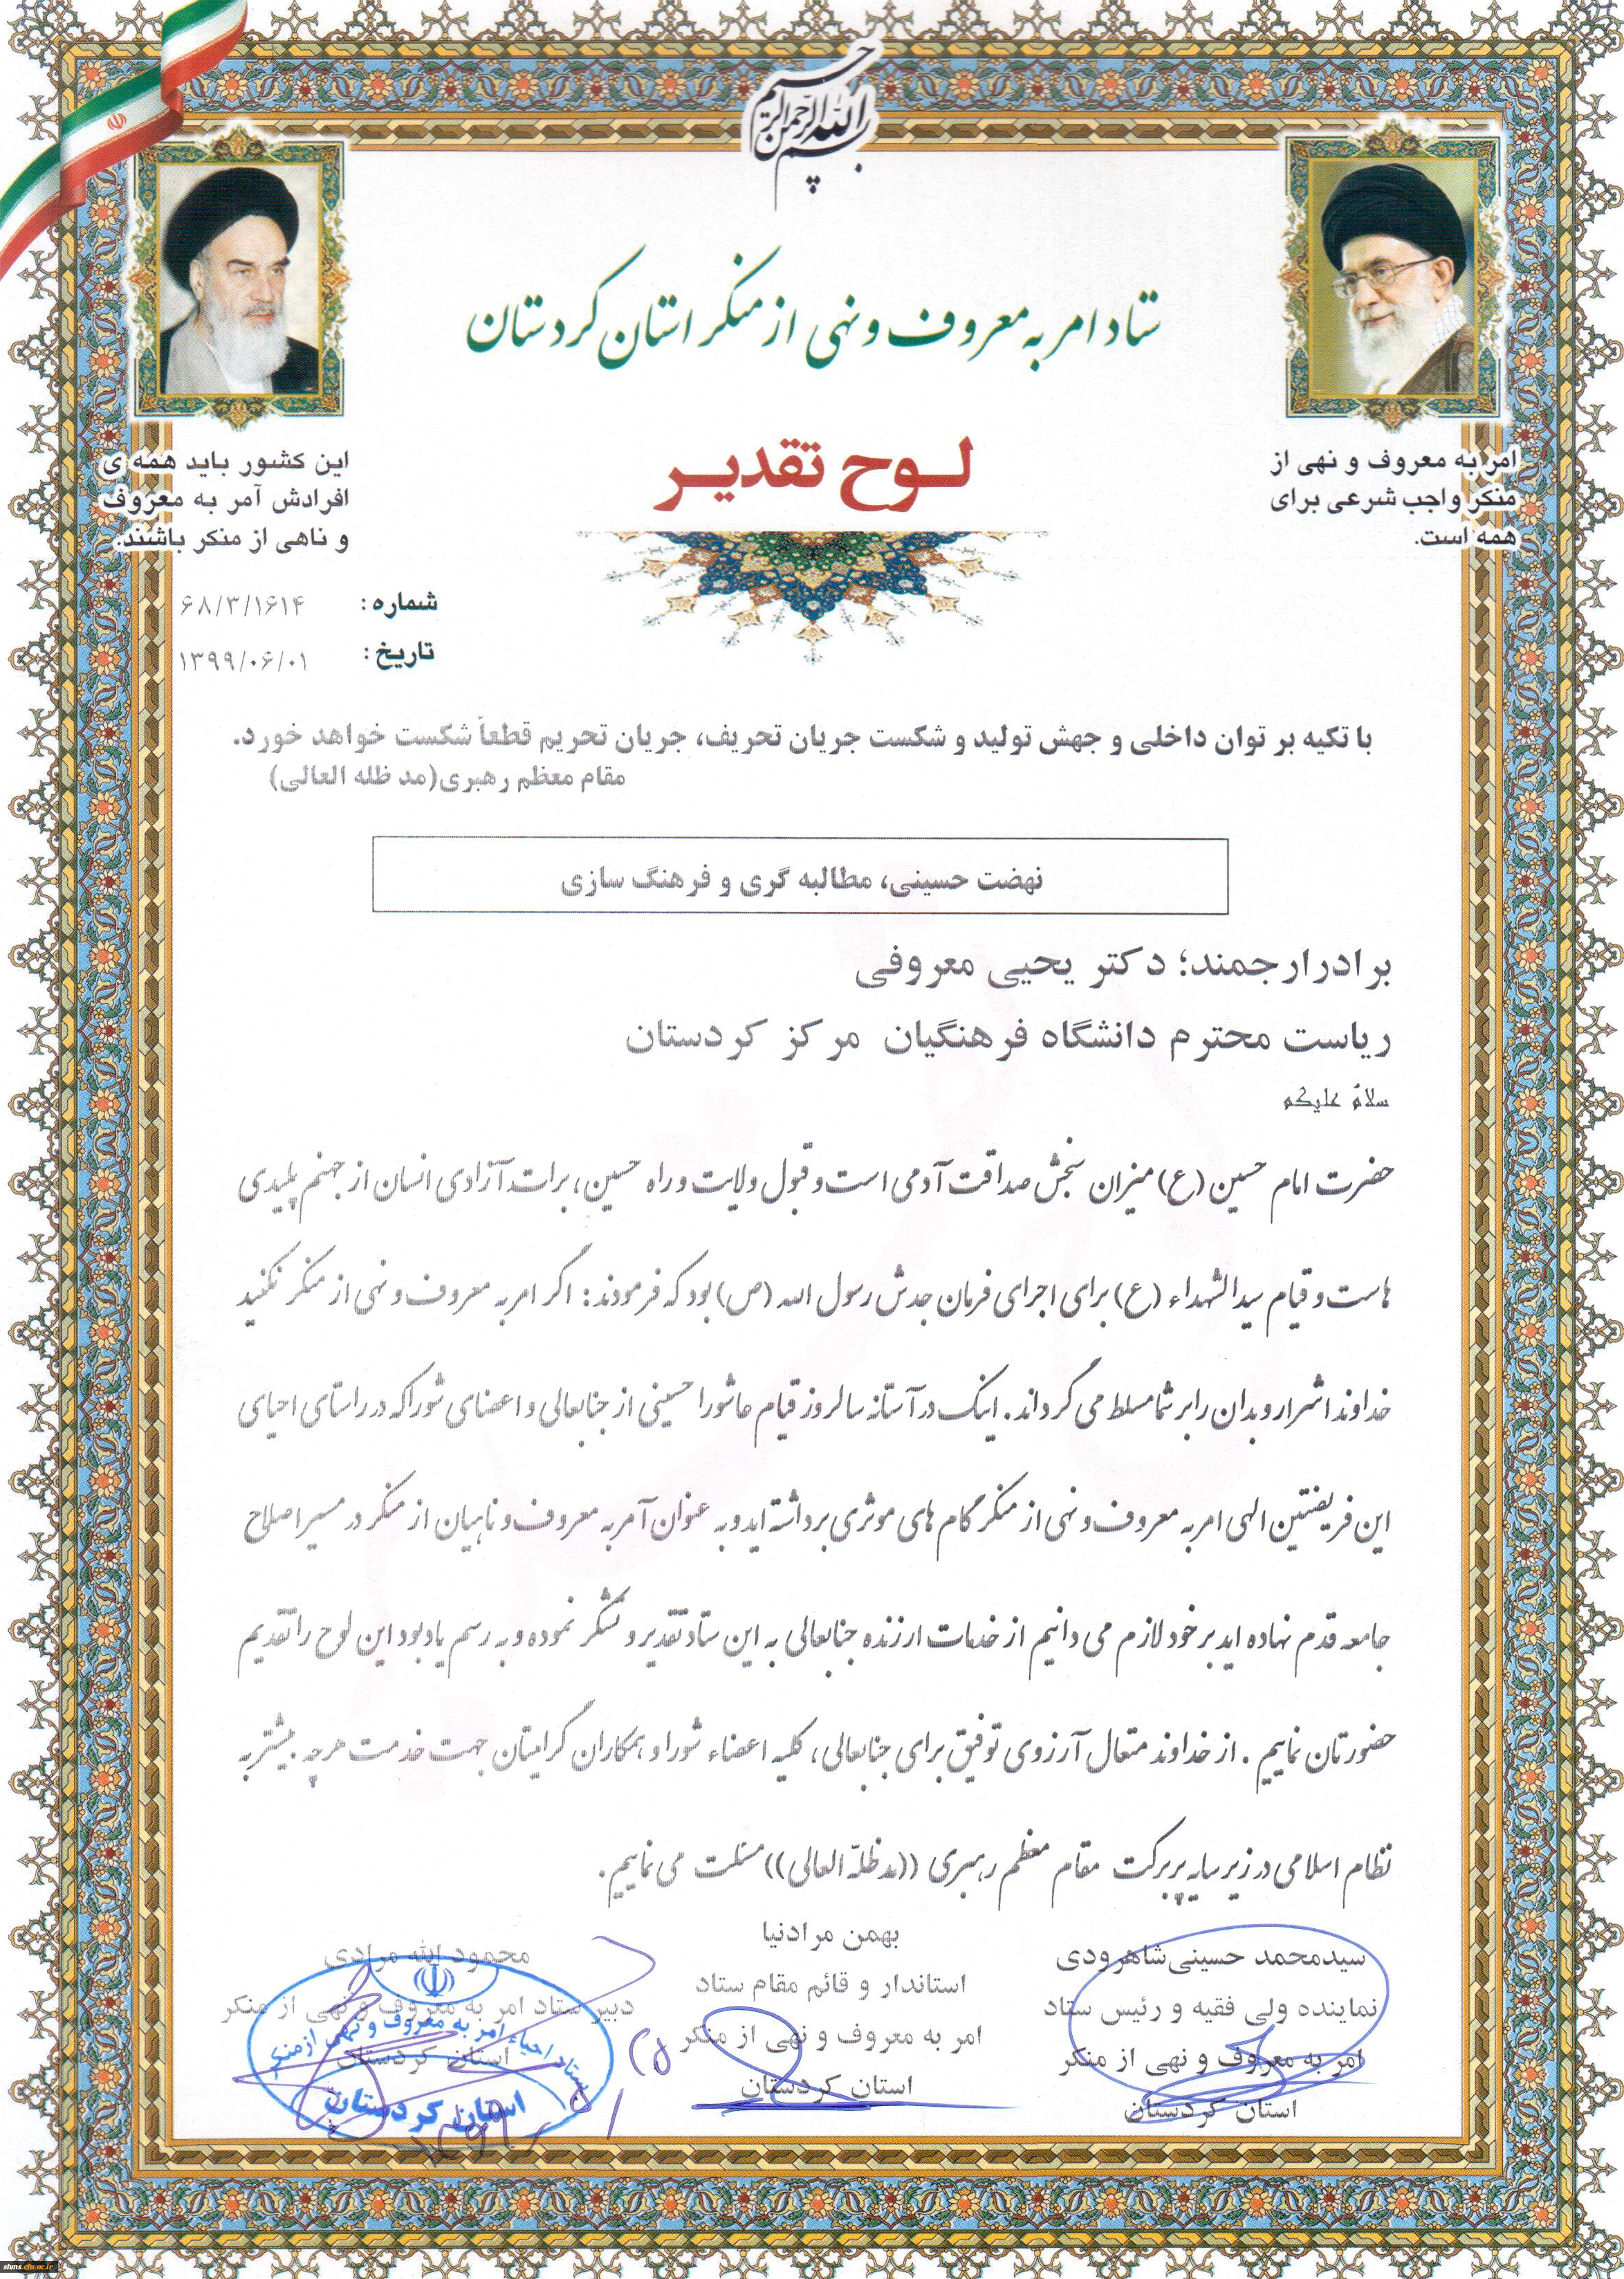 بسم الله الرحمن الرحیم
ستاد امر به معروف و نهی از منکر استان کردستان
لوح تقدیر
امر به معروف و نهی از
منکر واجب شرعی برای
همه است.
این کشور باید همه ی
افرادش آمر به معروف
و ناهی از منکر باشند.
شماره : ۶۸/۳/۱۶۱۴
تاریخ : ۱۳۹۹/۰۶/۰۱
با تکیه بر توان داخلی و جهش تولید و شکست جریان تحریف، جریان تحریم قطعاً شکست خواهد خورد.
مقام معظم رهبری(مد ظله العالی)
نهضت حسینی، مطالبه گری و فرهنگ سازی
برادرارجمند؛ دکتر یحیی معروفی
ریاست محترم دانشگاه فرهنگیان مرکز کردستان
سلامٌ علیکم
حضرت امام حسین (ع) میزان سنجش صداقت آدمی است و قبول ولایت و راه حسین، برات آزادی انسان از جهنم پلیدی
هاست و قیام سیدالشهداء (ع) برای اجرای فرمان جدش رسول الله (ص) بود که فرمودند: اگر امر به معروف و نهی از منکر نکنید
خداوند اشرار و بدان را بر شما مسلط می گرداند. اینک در آستانه سالروز قیام عاشورا حسینی از جنابعالی و اعضای شورا که در راستای احیای
این فریضتین الهی امر به معروف و نهی از منکر گام های موثری برداشته اید و به عنوان آمر به معروف و ناهیان از منکر در مسیر اصلاح
جامعه قدم نهاده اید بر خود لازم می دانیم از خدمات ارزنده جنابعالی به این ستاد تقدیر و تشکر نموده و به رسم یادبود این لوح را تقدیم
حضورتان نماییم . از خداوند متعال آرزوی توفیق برای جنابعالی، کلیه اعضاء شورا و همکاران گرامیتان جهت خدمت هرچه بیشتر به
نظام اسلامی در زیر سایه پربرکت مقام معظم رهبری ((مدظلّه العالی)) مسئلت می نماییم.
سیدمحمد حسینی شاهرودی
نماینده ولی فقیه و رئیس ستاد
امر به معروف و نهی از منکر
استان کردستان
بهمن مرادنیا
استاندار و قائم مقام ستاد
امر به معروف و نهی از منکر
استان کردستان
محمود الله مرادی
دبیر ستاد امر به معروف و نهی از منکر
استان کردستان
ستاد احیاء امر به معروف و نهی ازمنکر
استان کردستان
sluns.cfu.ac.ir